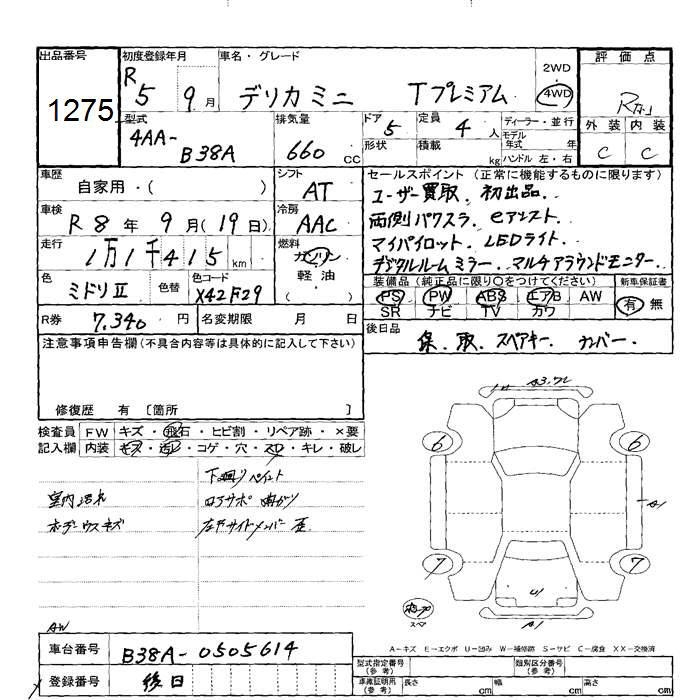 出品番号 初度登録年月 車名・グレード 評価点
1275
R 5 9月 デリカミニ Tプレミアム 2WD 4WD
型式 排気量 ドア 定員 ディーラー・並行 外装 内装
4AA-B38A 660 CC 5 4人 モデル年式 年
形状 積載 kg ハンドル 左・右 C C
車歴 シフト セールスポイント(正常に機能するものに限ります)
自家用・( ) AT ユーザー買取、初出品、
車検 冷房 両側パワスラ、eアシスト、
R 8年 9月(19日) AAC マイパイロット、LEDライト、
走行 燃料 デジタルルームミラー、マルチアラウンドモニター、
1万1千415km ガソリン
軽油
( )
色 色替 色コード 装備品(純正品に限り○をつけてください) 新車保証書
ミドリⅡ X42F29 PS PW ABS エアB AW 有 無
SR ナビ TV カワ
R券 7,340円 名変期限 月 日 後日品
保、取、スペアキー、ナンバー、
注意事項申告欄(不具合内容等は具体的に記入して下さい)
修復歴 有 [箇所 ]
検査員 FW キズ・飛石・ヒビ割・リペア跡・×要
記入欄 内装 キズ・汚レ・コゲ・穴・スレ・キレ・破レ
下廻りペイント
室内汚れ ロアサポ曲がり
ボデーウスキズ 左右サイドメンバー歪
A3.フレ
6 6
A1
7 7
U1
A1
スペア
AW
A-キズ E-エクボ U-凹み W-補修跡 S-サビ C-腐食 XX-交換済
車台番号 B38A-0505614 型式指定番号(参考) 類別区分番号(参考)
登録番号 後日 車庫証明用(参考) 長さ cm 幅 cm 高さ cm